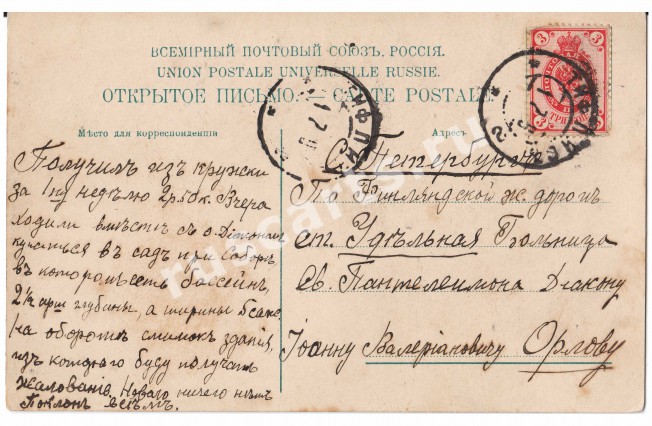 ВСЕМІРНЫЙ ПОЧТОВЫЙ СОЮЗЪ. РОССІЯ.
UNION POSTALE UNIVERSELLE RUSSIE.
ОТКРЫТОЕ ПИСЬМО. — CARTE POSTALE
Мѣсто для корреспонденціи
Адресъ
3 3
Получилъ изъ кружки
за 1ую недѣлю 2 р. 50 к. Вчера
ходили вмѣстѣ съ о. Діакономъ
купаться въ садъ при Соборѣ,
въ которомъ есть бассейнъ,
2½ арш глубины, а ширины 8 саж.
На оборотѣ снимокъ зданія,
изъ котораго буду получать
жалованіе. Новаго ничего нѣтъ
Поклонъ всѣмъ.
С Петербургъ
По Финляндской ж. дорогѣ
ст. Удѣльная Больница
Св. Пантелеимона Діакону
Іоанну Валеріановичу Орлову
rus-cards.ru